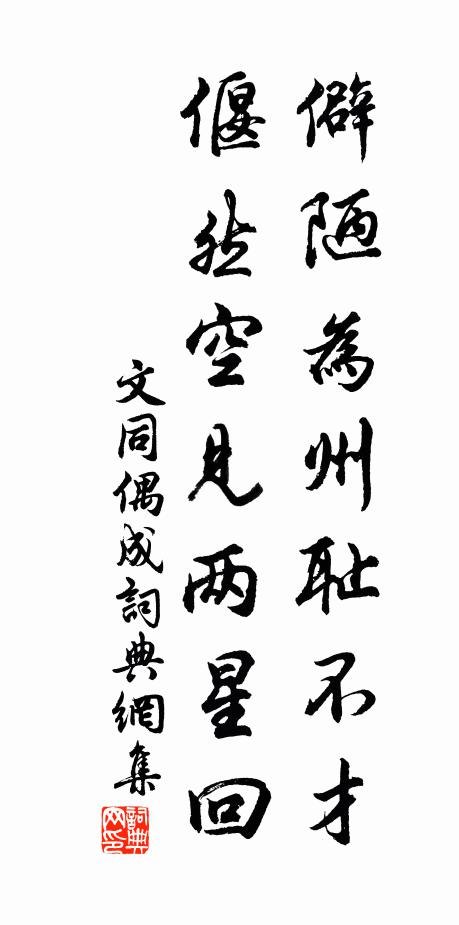 僻陋為州耻不才
偃然空見两星回
文同偶成詞典網集
詞典網印